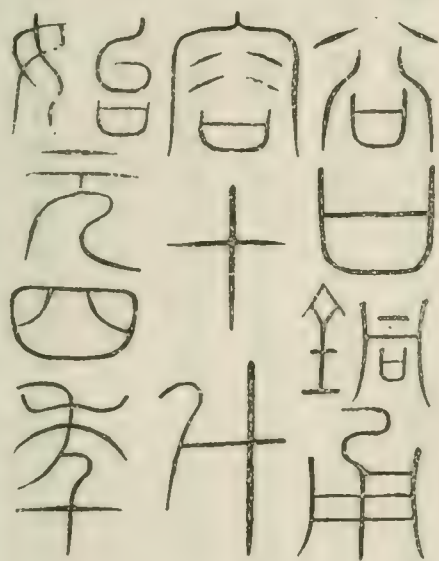 谷口銅甬
容十斗
始元四年